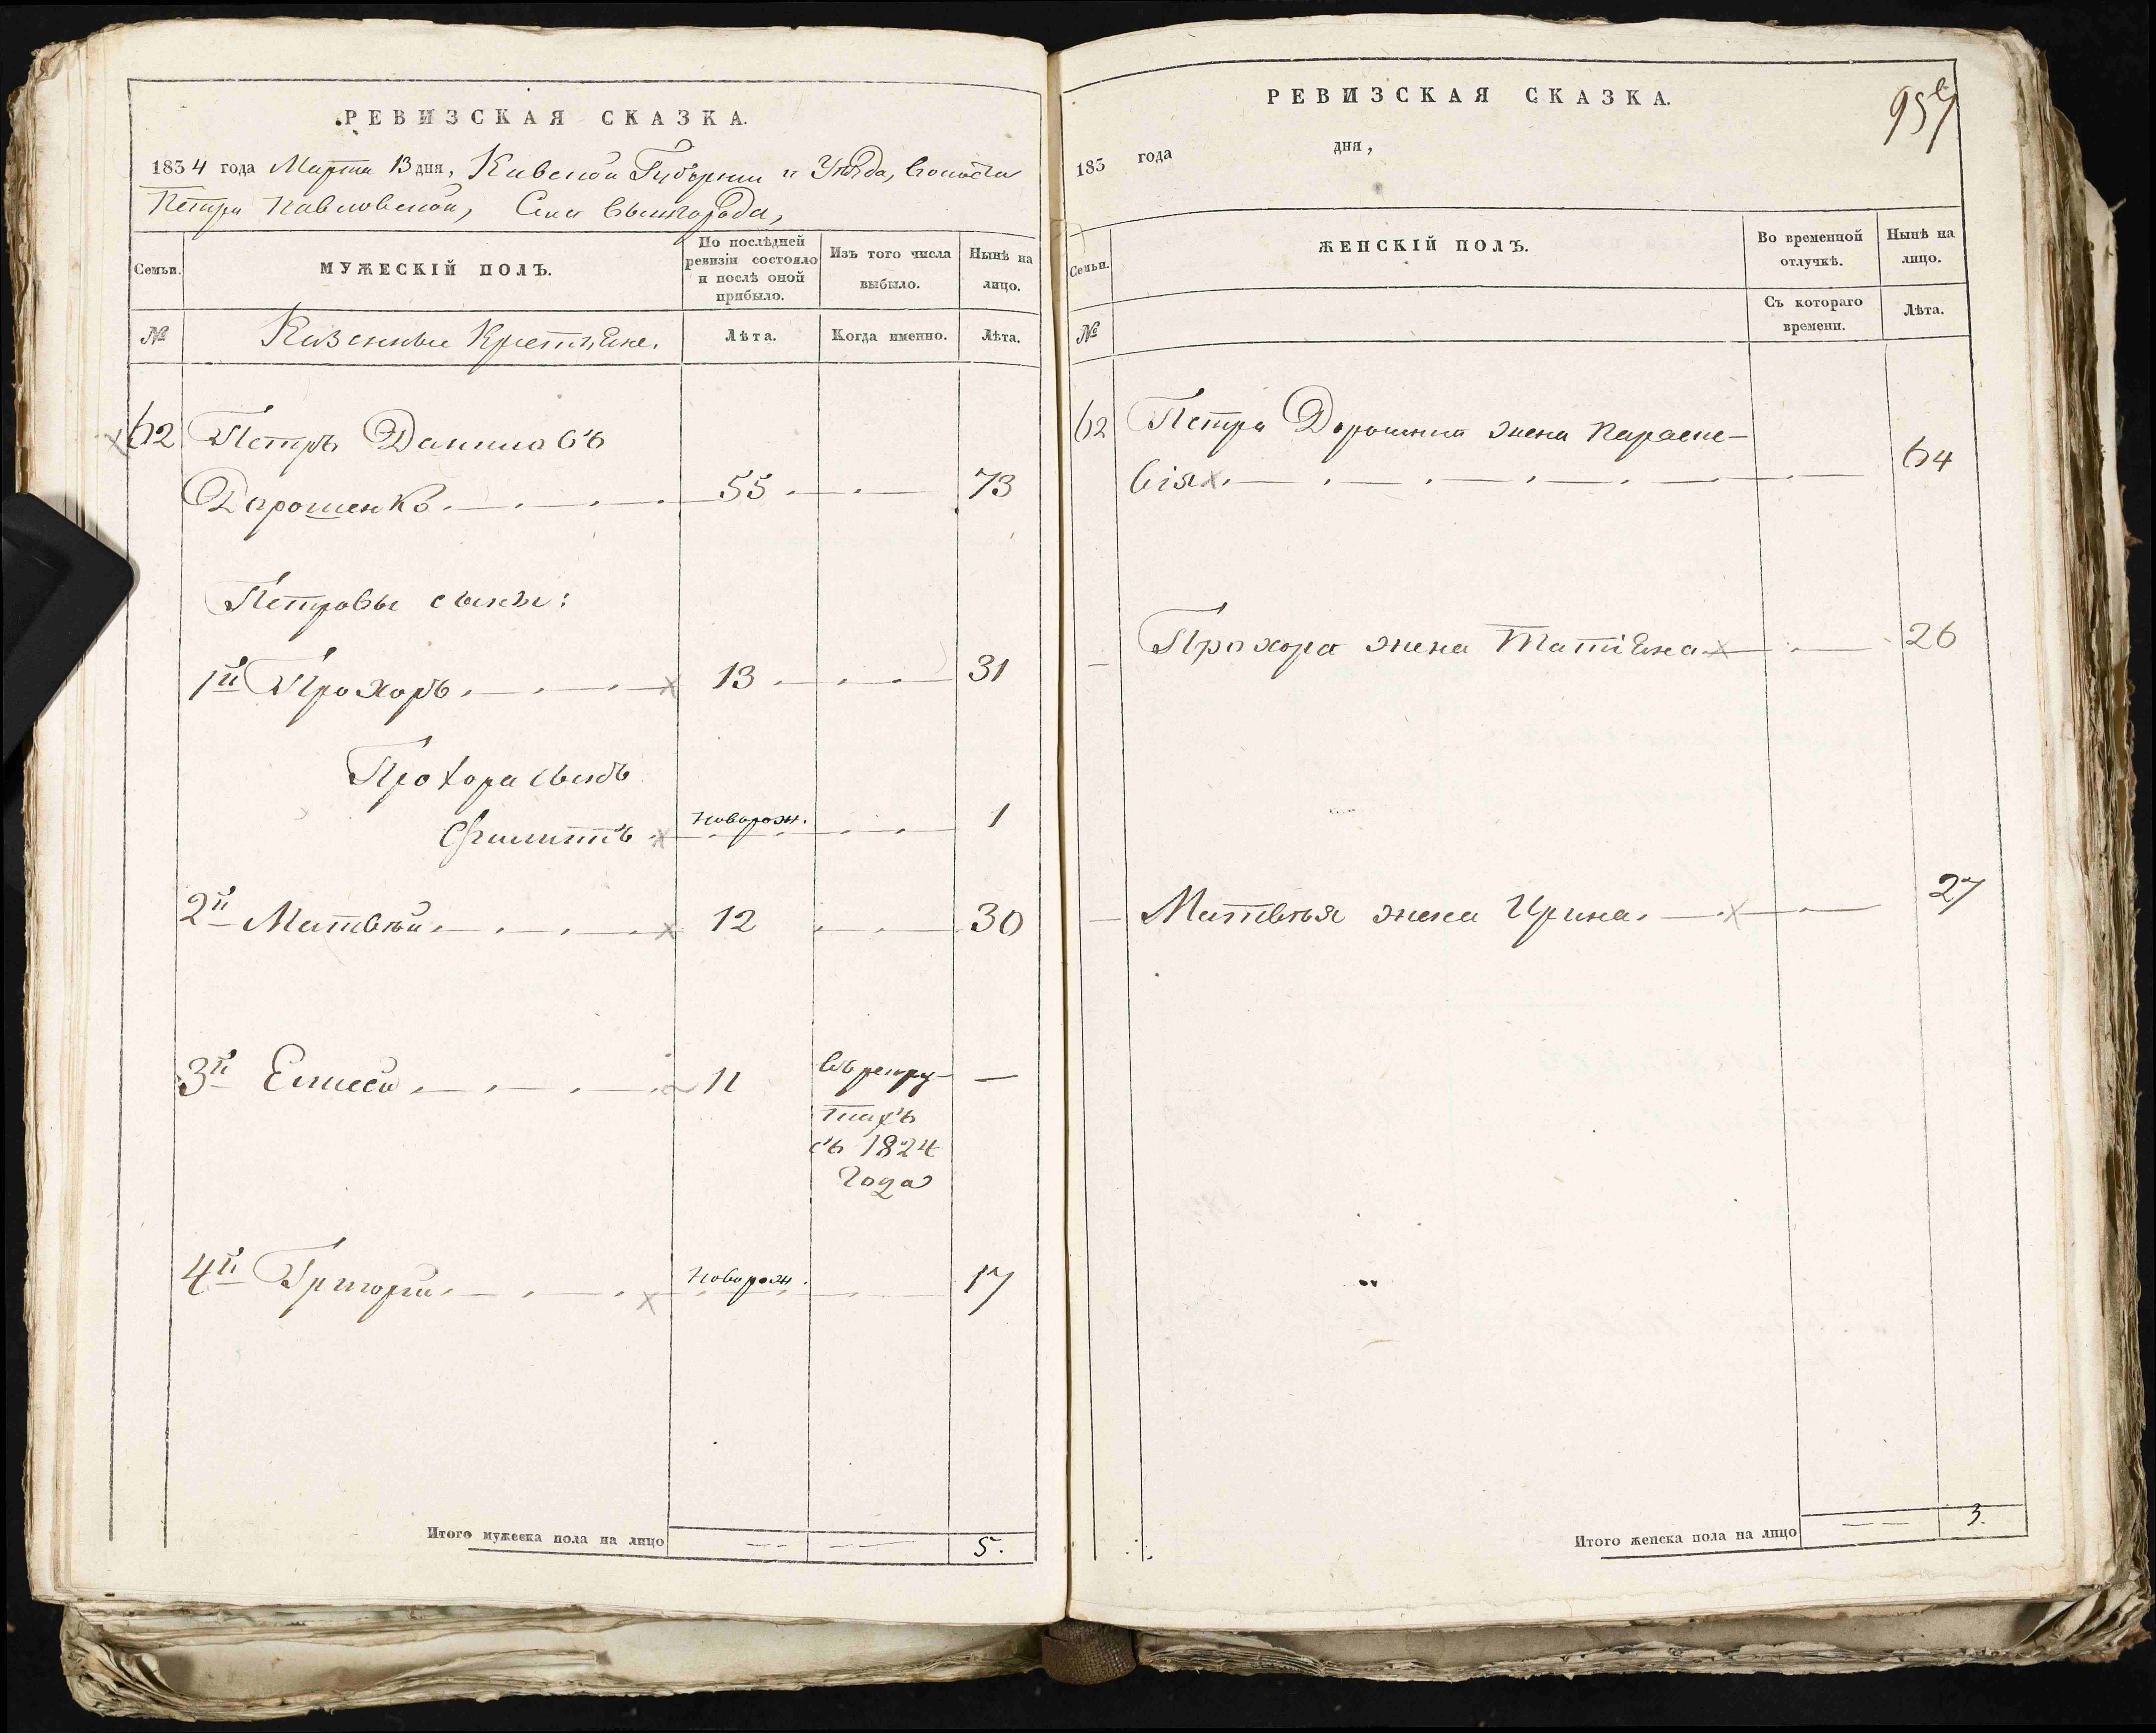 РЕВИЗСКАЯ СКАЗКА.
1834 года Марта 13 дня, Киевской Губернии и Уезда, Волости
Петро Павловской, Села Вышгорода,
Семьи.
МУЖЕСКІЙ ПОЛЪ.
По послѣдней
ревизіи состояло
и послѣ оной
прибыло.
Изъ того числа
выбыло.
Нынѣ на
лицо.
№
Казенные Крестьяне.
Лѣта.
Когда именно.
Лѣта.
62 Петръ Даниловъ
Дорошенко 55 73
Петровы сыны:
1й Прохоръ 13 31
Прохора сынъ
Филиппъ новорож. 1
2й Матвѣй 12 30
3й Елисей 11 въ рекру- —
тахъ
съ 1824
года
4й Григорій новорож. 17
Итого мужеска пола на лицо 5.
РЕВИЗСКАЯ СКАЗКА.
957
183 года дня,
Семьи.
ЖЕНСКІЙ ПОЛЪ.
Во временной
отлучкѣ.
Нынѣ на
лицо.
№
Съ котораго
времени.
Лѣта.
62 Петра Дорошенка жена Параске-
вія 64
Прохора жена Татіяна 26
Матвѣя жена Ирина 27
Итого женска пола на лицо 3.